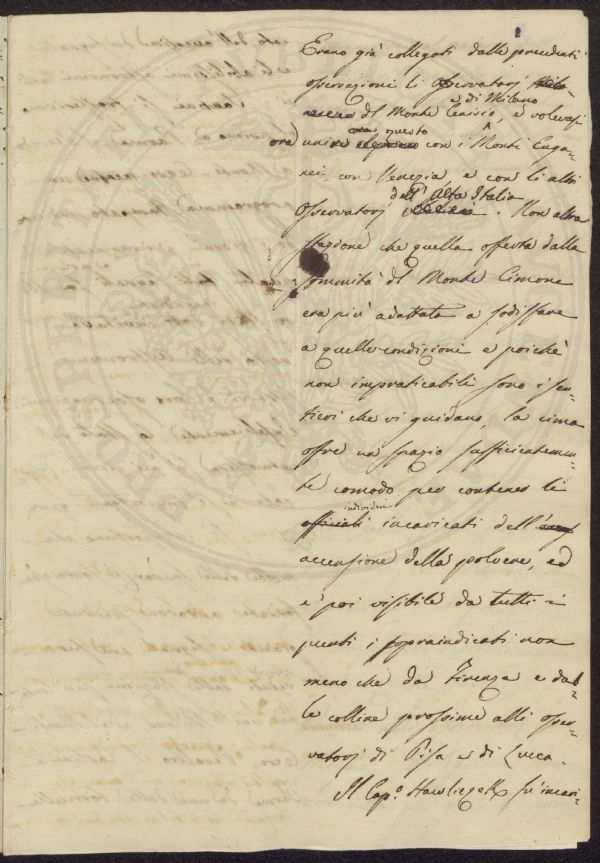 2
Erano già collegati dalle precedenti
osservazioni li osservatorj
e di Milano
del Monte Cenisio, e volevasi
questo
ora unire con i Monti Euga-
nei, con Venezia, e con li altri
dell'Alta Italia
Osservatorj. Non altra
stazione che quella offerta dalla
sommità del Monte Cimone
era più adattata a sodisfare
a quelle condizioni e poichè
non impraticabili sono i sen-
tieri che vi guidano, la cima
offre un spazio sufficientemen-
te comodo per contenere li
individui
officiali incaricati dell'
accensione della polvere, ed
è poi visibile da tutti i
punti i sopraindicati non
meno che da Firenze e dal-
le colline prossime alli osser-
vatorj di Pisa e di Lucca.
Il Cap.o Hawliczek fu incari-